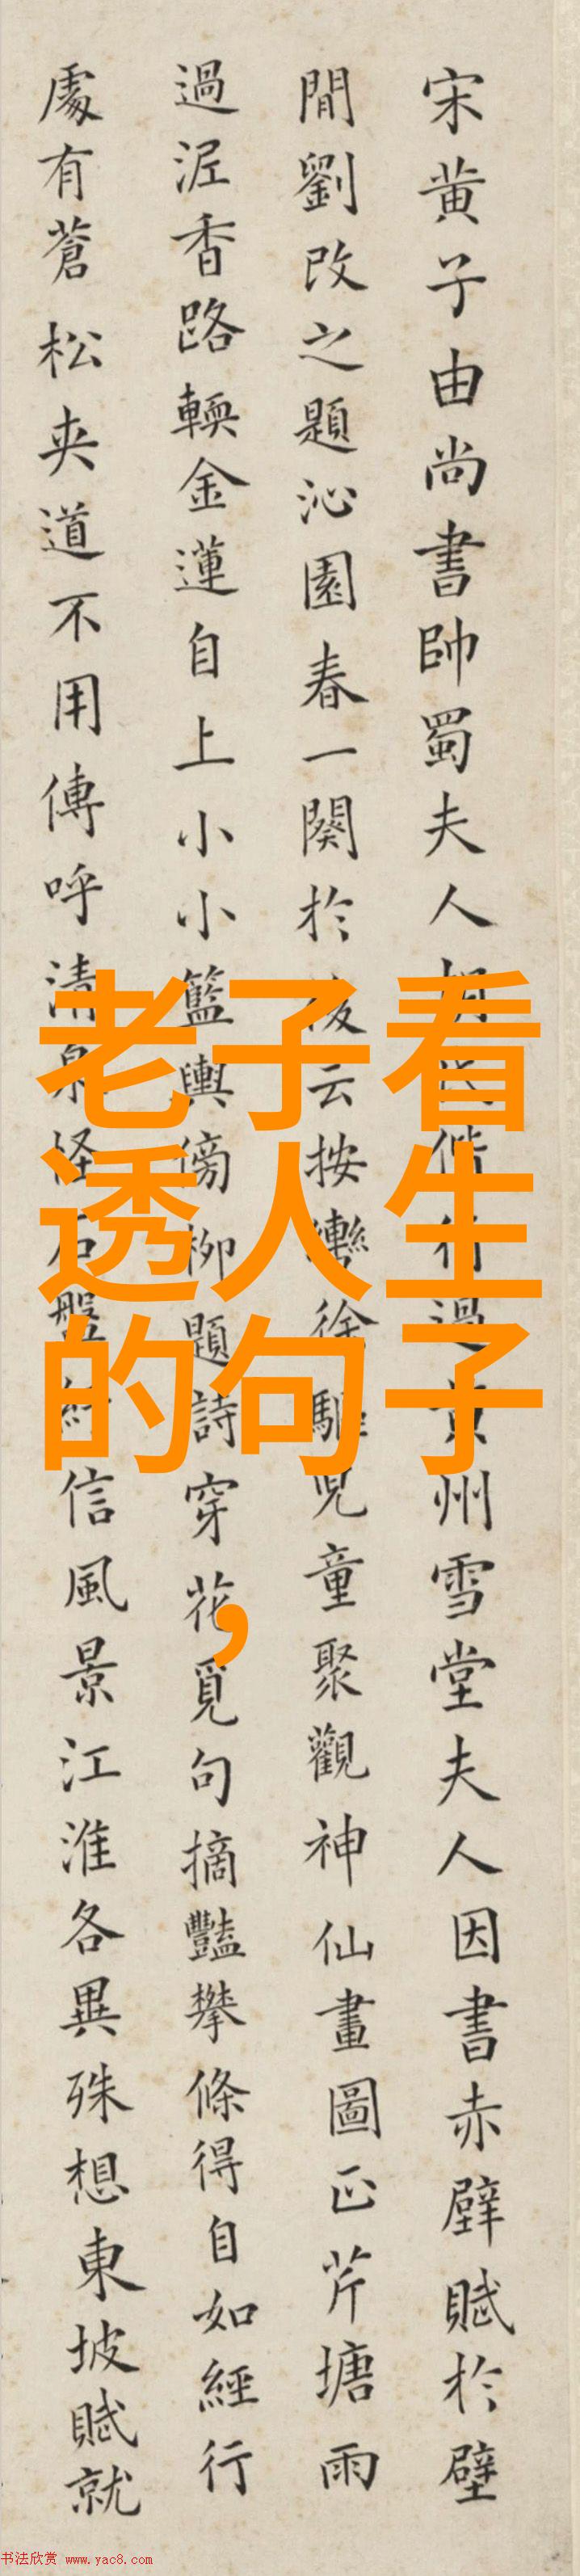 宋黄子由尚書帥蜀夫人胡氏偕行過黄州雪堂夫人因書赤壁賦於壁
間劉改之題沁園春一闋於後云按轡徐驅兒童聚觀神仙畫圖正芹塘雨
過泥香路輭金蓮自上小小籃輿傍柳題詩穿花覓句摘豔攀條得自如經行
處有蒼松夾道不用傳呼清泉怪石盤紆信風景江淮各異殊想東坡賦就
老子看
透人生
的句子
，
书法欣赏 www.yac8.com